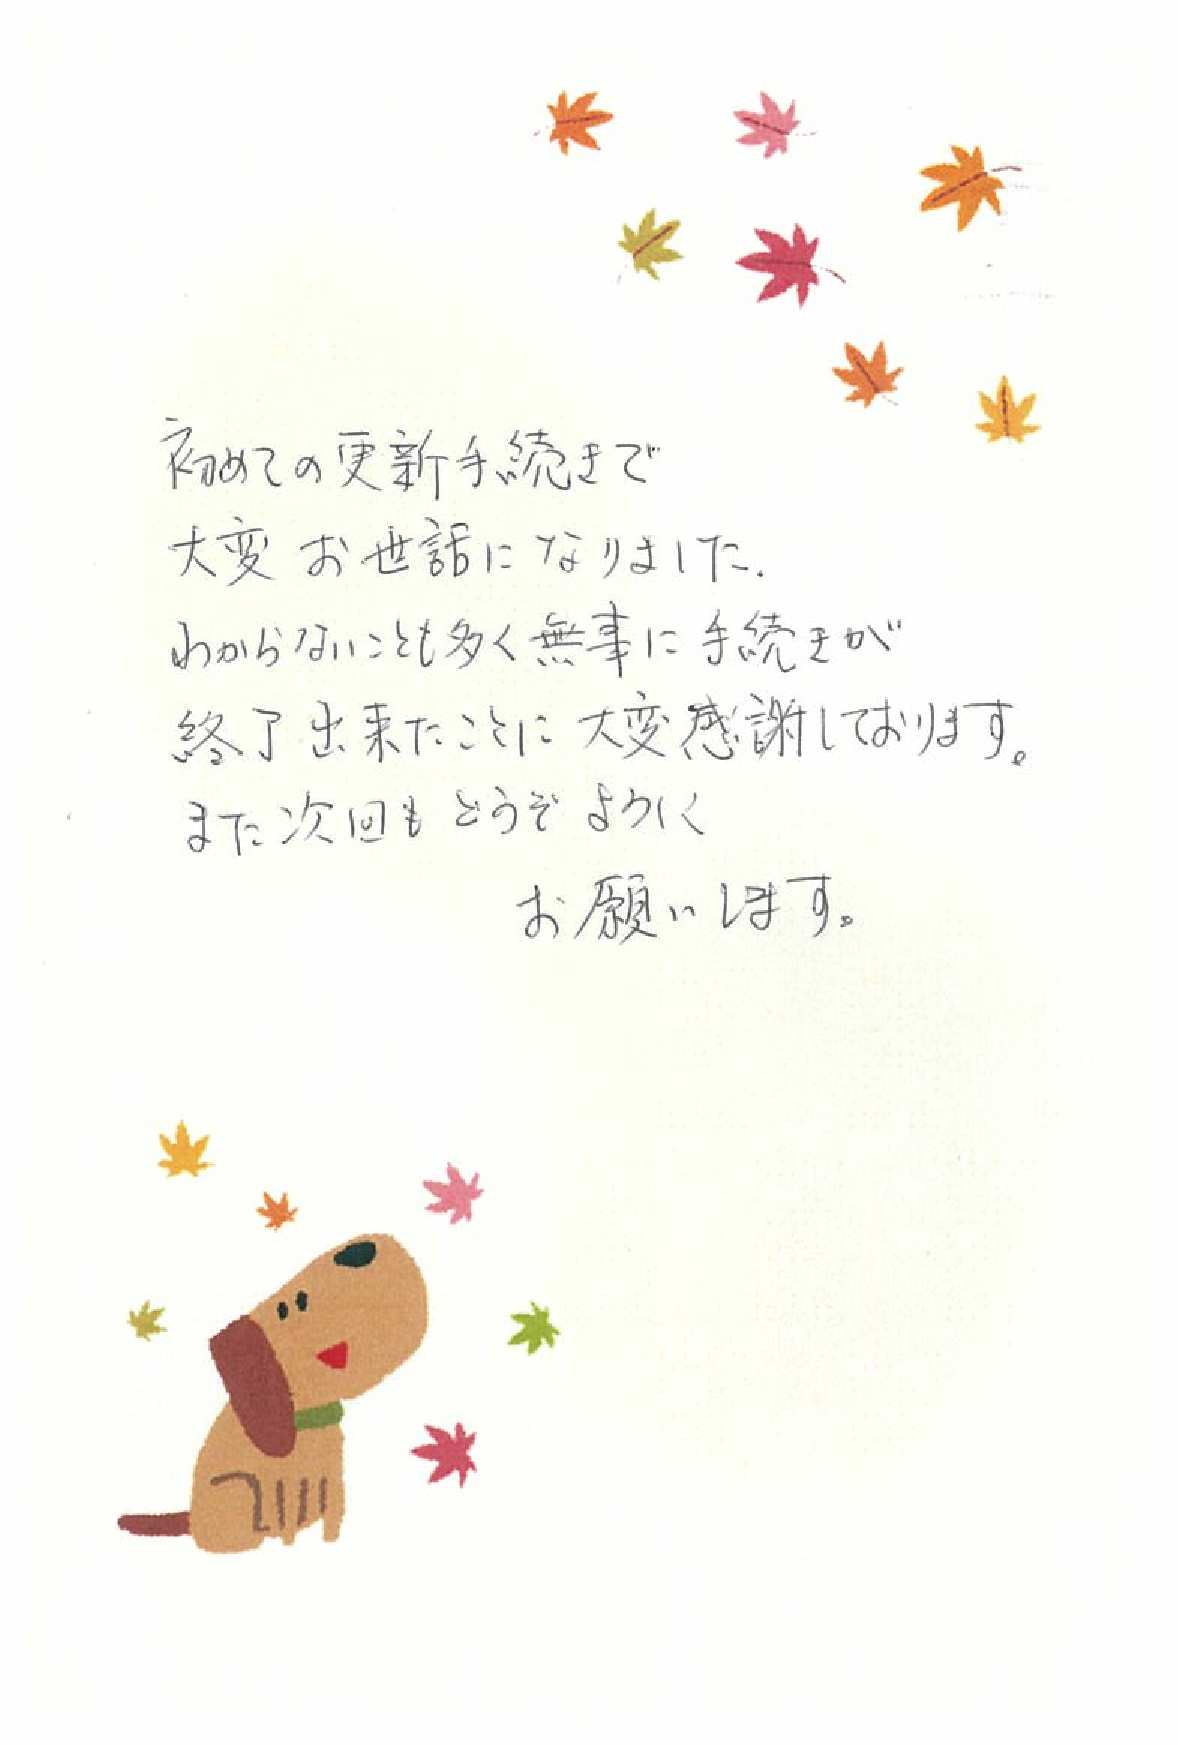 初めての更新手続きで
大変お世話になりました.
わからないことも多く無事に手続きが
終了出来たことに大変感謝しております。
また次回もどうぞよろしく
お願いします。